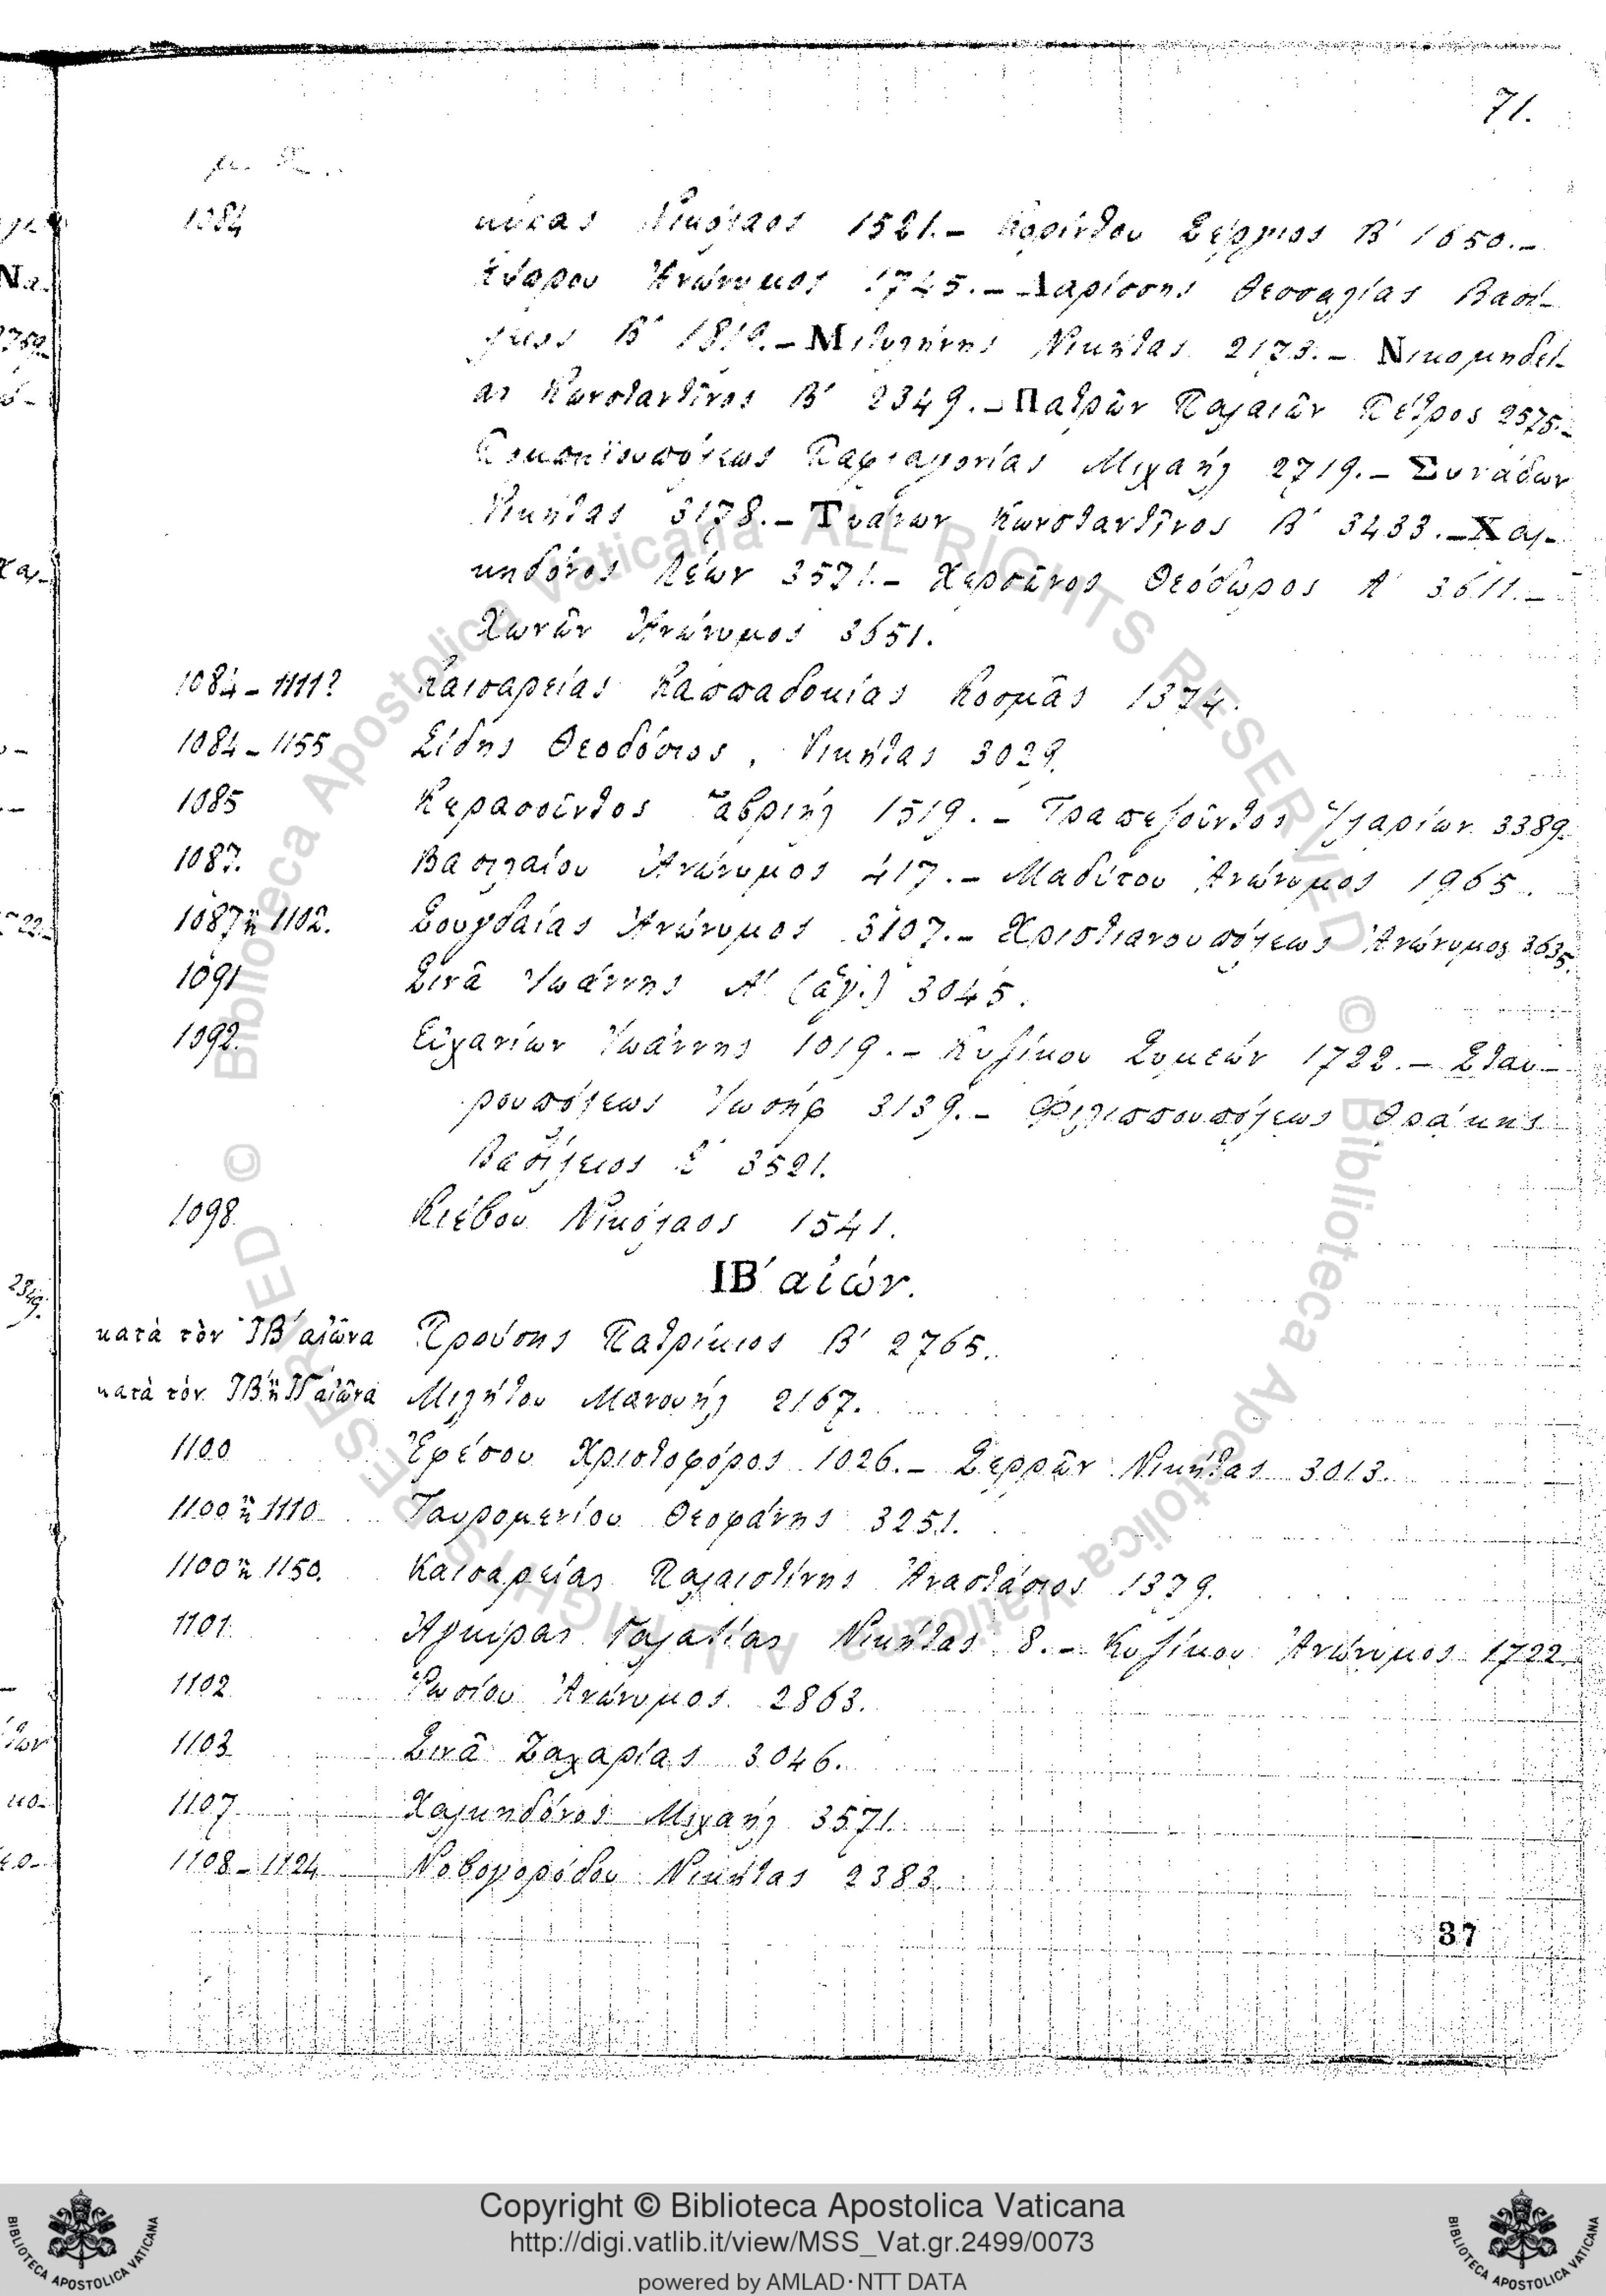 71.
μ. Χ.
1084 κύρας Νικόλαος 1521.– Κορίνθου Σέργιος Β′ 1650.–
Κύπρου Ἀνώνυμος 1745.– Λαρίσσης Θεσσαλίας Βασί–
λειος Β′ 1819.– Μιτυλήνης Νικήτας 2173.– Νικομηδεί–
ας Κωνσταντῖνος Β′ 2349.– Πατρῶν Παλαιῶν Πέτρος 2575.–
Πομπηϊουπόλεως Παφλαγονίας Μιχαήλ 2719.– Συνάδων
Νικήτας 3178.– Τυάνων Κωνσταντῖνος Β′ 3433.– Χαλ–
κηδόνος Λέων 3571.– Χερσῶνος Θεόδωρος Α′ 3611.–
Χωνῶν Ἀνώνυμος 3651.
1084–1111? Καισαρείας Καππαδοκίας Κοσμᾶς 1374.
1084–1155 Σίδης Θεοδόσιος, Νικήτας 3029.
1085 Κερασοῦντος Γαβριήλ 1519.– Τραπεζοῦντος Ἱλαρίων 3389.
1087. Βασιλαίου Ἀνώνυμος 417.– Μαδύτου Ἀνώνυμος 1965.
1087 ἢ 1102. Σουγδαίας Ἀνώνυμος 3107.– Χριστιανουπόλεως Ἀνώνυμος 3635.
1091 Σινᾶ Ἰωάννης Α′ (ἅγ.) 3045.
1092. Εὐχανίων Ἰωάννης 1019.– Κυζίκου Συμεών 1722.– Σταυ–
ρουπόλεως Ἰωσήφ 3139.– Φιλιππουπόλεως Θρᾴκης
Βασίλειος 3521.
1098. Κιέβου Νικόλαος 1541.
ΙΒ′ αἰών.
κατὰ τὸν ΙΒ′ αἰῶνα Προύσης Πατρίκιος Β′ 2765.
κατὰ τὸν ΙΒ′ ἢ ΙΓ′ αἰῶνα Μιλήτου Μανουήλ 2167.
1100 Ἐφέσου Χριστοφόρος 1026.– Σερρῶν Νικήτας 3013.
1100 ἢ 1110 Ταυρομενίου Θεοφάνης 3251.
1100 ἢ 1150. Καισαρείας Παλαιστίνης Ἀναστάσιος 1379.
1101 Ἀγκύρας Γαλατίας Νικήτας 8.– Κυζίκου Ἀνώνυμος 1722.
1102 Ῥωσίου Ἀνώνυμος 2863.
1103 Σινᾶ Ζαχαρίας 3046.
1107 Χαλκηδόνος Μιχαήλ 3571.
1108–1124 Νοβογορόδου Νικήτας 2383.
37
Copyright © Biblioteca Apostolica Vaticana
http://digi.vatlib.it/view/MSS_Vat.gr.2499/0073
powered by AMLAD·NTT DATA